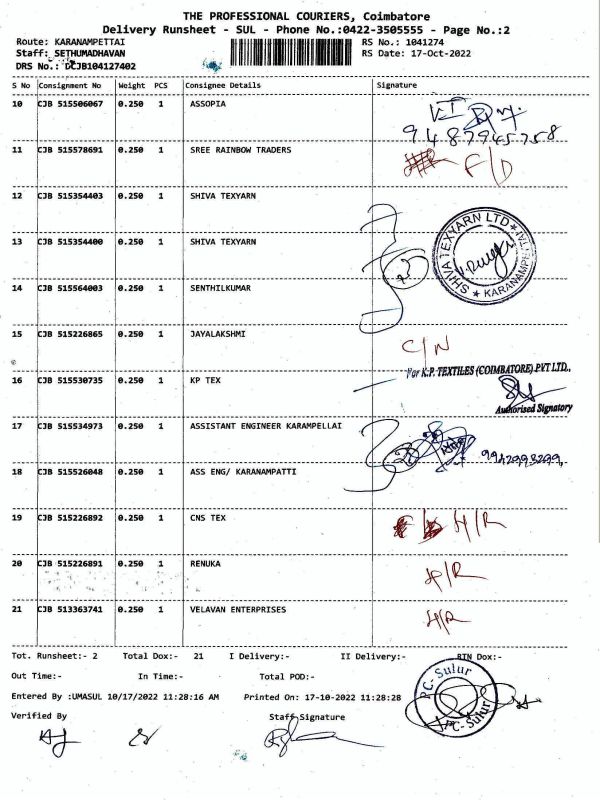 THE PROFESSIONAL COURIERS, Coimbatore
Delivery Runsheet - SUL - Phone No.:0422-3505555 - Page No.:2
Route: KARANAMPETTAI RS No.: 1041274
Staff: SETHUMADHAVAN RS Date: 17-Oct-2022
DRS No.: DCJB104127402
S No Consignment No Weight PCS Consignee Details Signature
10 CJB 515506067 0.250 1 ASSOPIA
9487945758
11 CJB 515578691 0.250 1 SREE RAINBOW TRADERS F/D
12 CJB 515354403 0.250 1 SHIVA TEXYARN
SHIVA TEXYARN LTD ★ KARANAMPETTAI ★
13 CJB 515354400 0.250 1 SHIVA TEXYARN
14 CJB 515564003 0.250 1 SENTHILKUMAR
15 CJB 515226865 0.250 1 JAYALAKSHMI C/N
For K.P. TEXTILES (COIMBATORE) PVT LTD.,
16 CJB 515530735 0.250 1 KP TEX
Authorised Signatory
17 CJB 515534973 0.250 1 ASSISTANT ENGINEER KARAMPELLAI
18 CJB 515526048 0.250 1 ASS ENG/ KARANAMPATTI
19 CJB 515226892 0.250 1 CNS TEX H/R
20 CJB 515226891 0.250 1 RENUKA H/R
21 CJB 513363741 0.250 1 VELAVAN ENTERPRISES H/R
Tot. Runsheet:- 2 Total Dox:- 21 I Delivery:- II Delivery:- RTN Dox:-
Out Time:- In Time:- Total POD:-
PC-Sulur
PC-Sulur
Entered By :UMASUL 10/17/2022 11:28:16 AM Printed On: 17-10-2022 11:28:28
Verified By Staff Signature